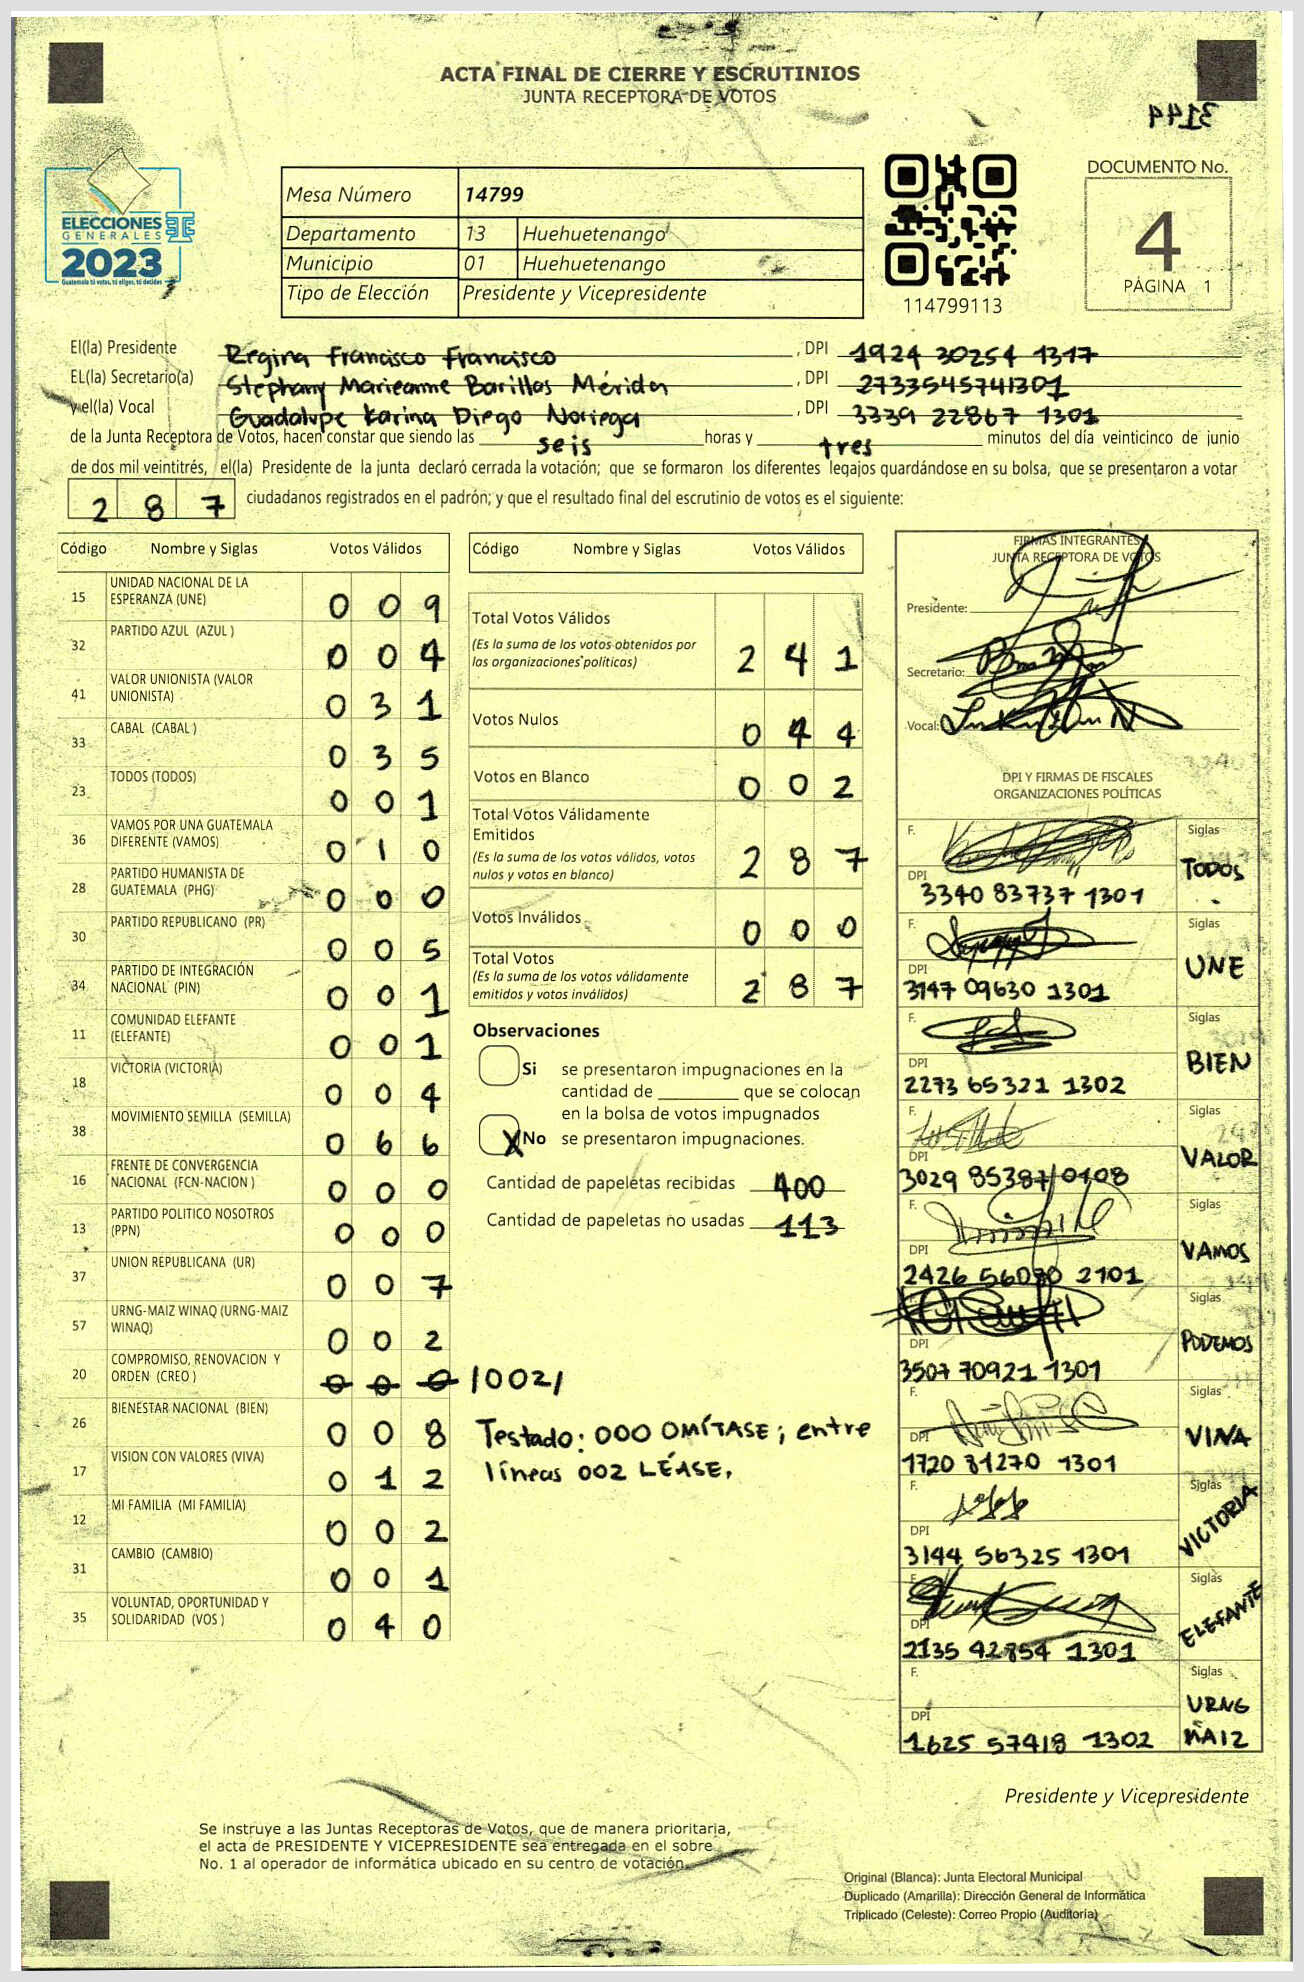 ACTA FINAL DE CIERRE Y ESCRUTINIOS
JUNTA RECEPTORA DE VOTOS
3144
DOCUMENTO No.
4
PÁGINA 1
ELECCIONES
GENERALES
2023
Guatemala tú votas, tú eliges, tú decides
Mesa Número 14799
Departamento 13 Huehuetenango
Municipio 01 Huehuetenango
Tipo de Elección Presidente y Vicepresidente
114799113
El(la) Presidente Regina Francisco Francisco , DPI 1924 30254 1317
EL(la) Secretario(a) Stephany Marieanne Barillas Mérida , DPI 2733545741301
y el(la) Vocal Guadalupe Karina Diego Noriega , DPI 3339 22867 1301
de la Junta Receptora de Votos, hacen constar que siendo las seis horas y tres minutos del día veinticinco de junio
de dos mil veintitrés, el(la) Presidente de la junta declaró cerrada la votación; que se formaron los diferentes legajos guardándose en su bolsa, que se presentaron a votar
287 ciudadanos registrados en el padrón; y que el resultado final del escrutinio de votos es el siguiente:
Código Nombre y Siglas Votos Válidos
15 UNIDAD NACIONAL DE LA ESPERANZA (UNE) 009
32 PARTIDO AZUL (AZUL ) 004
41 VALOR UNIONISTA (VALOR UNIONISTA) 031
33 CABAL (CABAL ) 035
23 TODOS (TODOS) 001
36 VAMOS POR UNA GUATEMALA DIFERENTE (VAMOS) 010
28 PARTIDO HUMANISTA DE GUATEMALA (PHG) 000
30 PARTIDO REPUBLICANO (PR) 005
34 PARTIDO DE INTEGRACIÓN NACIONAL (PIN) 001
11 COMUNIDAD ELEFANTE (ELEFANTE) 001
18 VICTORIA (VICTORIA) 004
38 MOVIMIENTO SEMILLA (SEMILLA) 066
16 FRENTE DE CONVERGENCIA NACIONAL (FCN-NACION ) 000
13 PARTIDO POLITICO NOSOTROS (PPN) 000
37 UNION REPUBLICANA (UR) 007
57 URNG-MAIZ WINAQ (URNG-MAIZ WINAQ) 002
20 COMPROMISO, RENOVACION Y ORDEN (CREO ) 000 /002/
26 BIENESTAR NACIONAL (BIEN) 008
17 VISION CON VALORES (VIVA) 012
12 MI FAMILIA (MI FAMILIA) 002
31 CAMBIO (CAMBIO) 001
35 VOLUNTAD, OPORTUNIDAD Y SOLIDARIDAD (VOS ) 040
Código Nombre y Siglas Votos Válidos
Total Votos Válidos 241
(Es la suma de los votos obtenidos por
las organizaciones políticas)
Votos Nulos 044
Votos en Blanco 002
Total Votos Válidamente
Emitidos 287
(Es la suma de los votos válidos, votos
nulos y votos en blanco)
Votos Inválidos 000
Total Votos 287
(Es la suma de los votos válidamente
emitidos y votos inválidos)
Observaciones
Si se presentaron impugnaciones en la
cantidad de ________ que se colocan
en la bolsa de votos impugnados
X No se presentaron impugnaciones.
Cantidad de papeletas recibidas 400
Cantidad de papeletas no usadas 113
Testado: 000 OMÍTASE; entre
líneas 002 LÉASE.
FIRMAS INTEGRANTES
JUNTA RECEPTORA DE VOTOS
Presidente:
Secretario:
Vocal:
DPI Y FIRMAS DE FISCALES
ORGANIZACIONES POLÍTICAS
F. Siglas
DPI 3340 83737 1301 TODOS
F. Siglas
DPI 3147 09630 1301 UNE
F. Siglas
DPI 2273 65321 1302 BIEN
F. Siglas
DPI 3029 85387/0108 VALOR
F. Siglas
DPI 2426 56080 2101 VAMOS
F. Siglas
DPI 3507 70921 1301 PODEMOS
F. Siglas
DPI 1720 81270 1301 VIVA
F. Siglas
DPI 3144 56325 1301 VICTORIA
F. Siglas
DPI 2135 42854 1301 ELEFANTE
F. Siglas
DPI 1625 57418 1302 URNG MAIZ
Presidente y Vicepresidente
Se instruye a las Juntas Receptoras de Votos, que de manera prioritaria,
el acta de PRESIDENTE Y VICEPRESIDENTE sea entregada en el sobre
No. 1 al operador de informática ubicado en su centro de votación.
Original (Blanca): Junta Electoral Municipal
Duplicado (Amarilla): Dirección General de Informática
Triplicado (Celeste): Correo Propio (Auditoría)